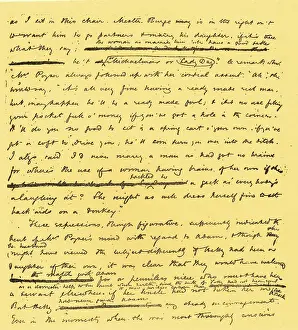 as I sit in this chair. Master Burge may be in the right on't
to want him to go partners & marry his daughter, if it's true
what they say; the woman as marries him 'ull have a good take,
be't Lady Day or Michaelmas," a remark which
Mrs. Poyser always followed up with her cordial assent. "Ah," she
would say, "it's all very fine having a ready made rich man,
but, may happen he'll be a ready made fool; & it's no use filling
your pocket full o' money if you've got a hole in the corner.
It'll do you no good to sit in a spring cart o' your own, if you've
got a soft to drive you; he'll soon turn you over into the ditch.
I allays said I'd never marry a man as had got no brains;
for where's the use of a woman having brains of her own if she's
tackled to a geck as everybody's
a-laughing at? She might as well dress herself fine to sit
back'ards on a donkey."
These expressions, though figurative, sufficiently indicated the
bent of Mrs. Poyser's mind with regard to Adam; & though she & her husband
might have viewed the subject differently if Hetty had been a
daughter of their own, it was clear that they would have welcomed
the match with Adam for a penniless niece. What could Hetty have been
a servant elsewhere, if her uncle had not taken her in &
But Hetty had never given Adam any steady encouragement.
Even in the moments when she was most thoroughly conscious